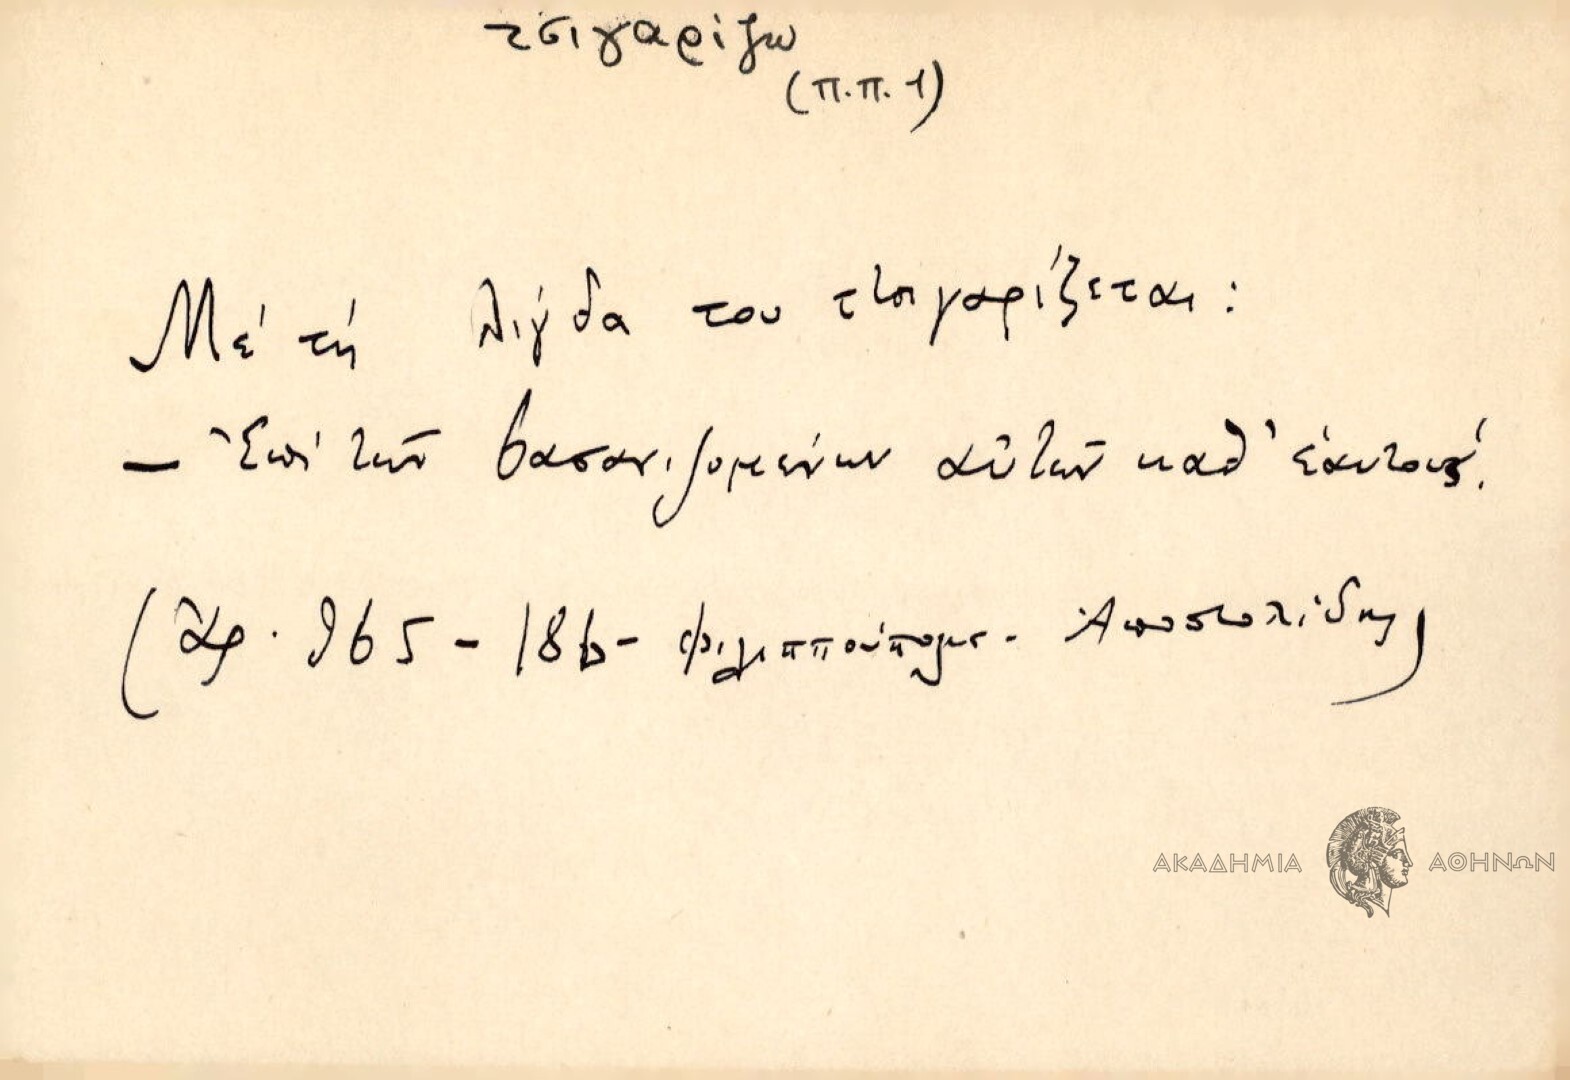 τσιγαρίζω
(π.π. 1)
Μέ τή λίγδα του τσιγαρίζεται:
— Ἐπί τῶν βασανιζομένων αὐτῶν καθ' ἑαυτούς.
(Ἀρ. 965 - 186 - Φιλιππούπολις - Ἀποστολίδης)
ΑΚΑΔΗΜΙΑ ΑΘΗΝΩΝ